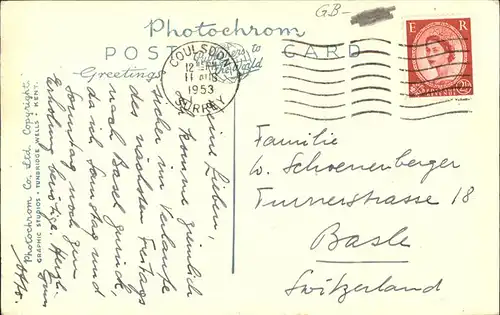 GB-
Photochrom
POST CARD
Greetings
Publishers to
the World
COULSDON
12
11 AUG
1953
SURREY
E R
Meine Lieben,
Ich komme ziemlich
sicher im Verlaufe
des nächsten Freitags
nach Basel zurück,
da ich Samstag und
Sonntag noch zur
Erholung benötige. Herzl.
Familie
W. Schoenenberger
Turnerstrasse 18
Basle
Switzerland
Photochrom Co. Ltd. Copyright
GRAPHIC STUDIOS • TUNBRIDGE WELLS • KENT.